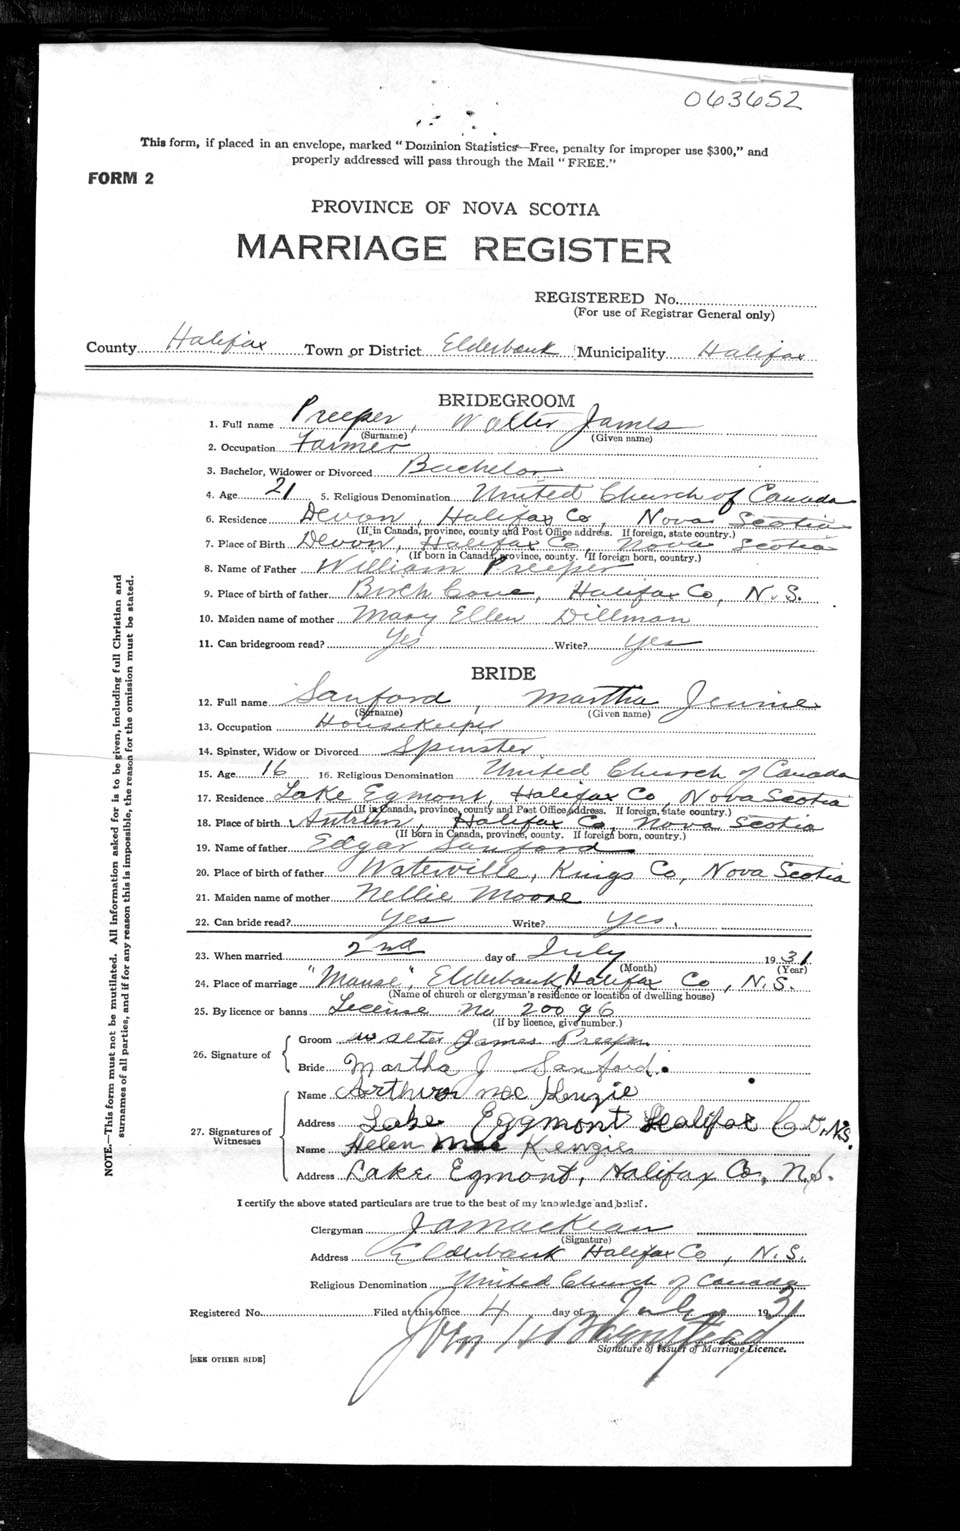 063652
This form, if placed in an envelope, marked "Dominion Statistics—Free, penalty for improper use $300," and
properly addressed will pass through the Mail "FREE."
FORM 2
PROVINCE OF NOVA SCOTIA
MARRIAGE REGISTER
REGISTERED No.
(For use of Registrar General only)
County Halifax Town or District Elderbank Municipality Halifax
BRIDEGROOM
1. Full name Preeper, Walter James
(Surname) (Given name)
2. Occupation Farmer
3. Bachelor, Widower or Divorced Bachelor
4. Age 21 5. Religious Denomination United Church of Canada
6. Residence Devon, Halifax Co, Nova Scotia
(If in Canada, province, county and Post Office address. If foreign, state country.)
7. Place of Birth Devon, Halifax Co Nova Scotia
(If born in Canada, province, county. If foreign born, country.)
8. Name of Father William Preeper
9. Place of birth of father Birch Cove, Halifax Co, N.S.
10. Maiden name of mother Mary Ellen Dillman
11. Can bridegroom read? Yes Write? Yes
BRIDE
12. Full name Sanford, Martha Jennie
(Surname) (Given name)
13. Occupation Housekeeper
14. Spinster, Widow or Divorced Spinster
15. Age 16 16. Religious Denomination United Church of Canada
17. Residence Lake Egmont, Halifax Co, Nova Scotia
(If in Canada, province, county and Post Office address. If foreign, state country.)
18. Place of birth Antrim, Halifax Co, Nova Scotia
(If born in Canada, province, county. If foreign born, country.)
19. Name of father Edgar Sanford
20. Place of birth of father Waterville, Kings Co, Nova Scotia
21. Maiden name of mother Nellie Moore
22. Can bride read? Yes Write? Yes.
23. When married 2nd day of July 1931
(Month) (Year)
24. Place of marriage "Manse", Elderbank Halifax Co, N.S.
(Name of church or clergyman's residence or location of dwelling house)
25. By licence or banns License No 20096
(If by licence, give number.)
26. Signature of
Groom Walter James Preeper
Bride Martha J Sanford.
27. Signatures of Witnesses
Name Arthur MacKenzie
Address Lake Eggmont Halifax Co, N.S.
Name Helen MacKenzie
Address Lake Egmont, Halifax Co, N.S.
I certify the above stated particulars are true to the best of my knowledge and belief.
Clergyman J A MacKean
(Signature)
Address Elderbank Halifax Co, N.S.
Religious Denomination United Church of Canada
Registered No. Filed at this office 4 day of July 1931
Signature of Issuer of Marriage Licence.
[SEE OTHER SIDE]
NOTE.—This form must not be mutilated. All information asked for is to be given, including full Christian and
surnames of all parties, and if for any reason this is impossible, the reason for the omission must be stated.